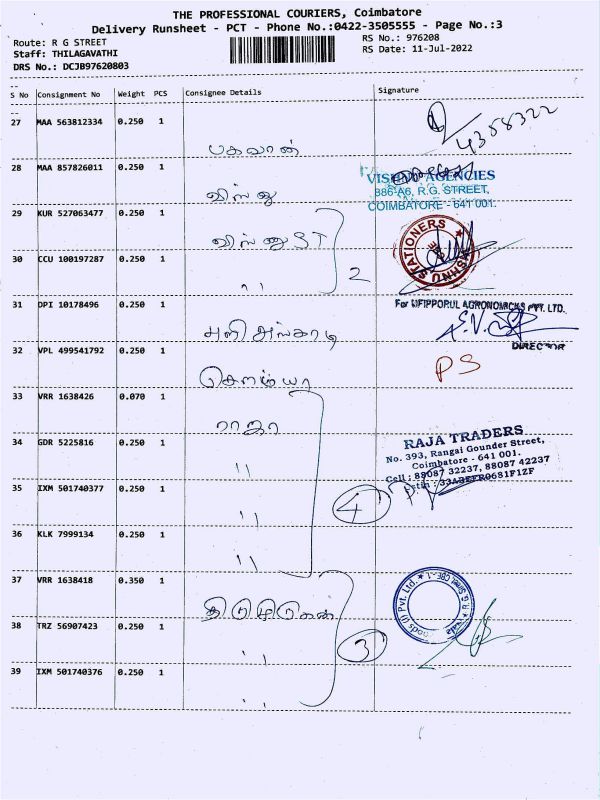 THE PROFESSIONAL COURIERS, Coimbatore
Delivery Runsheet - PCT - Phone No.:0422-3505555 - Page No.:3
Route: R G STREET
RS No.: 976208
Staff: THILAGAVATHI
RS Date: 11-Jul-2022
DRS No.: DCJB97620803
S No Consignment No Weight PCS Consignee Details Signature
27 MAA 563812334 0.250 1 பகவான் 4358322
28 MAA 857826011 0.250 1 விஸ்னு
VISHNU AGENCIES
386-A6, R.G. STREET,
COIMBATORE - 641 001.
29 KUR 527063477 0.250 1 விஸ்னு ST
STATIONERS
30 CCU 100197287 0.250 1 " 2
31 DPI 10178496 0.250 1
For UFIPPORUL AGRONOMICKS PVT. LTD.
DIRECTOR
32 VPL 499541792 0.250 1 சௌமியா PS
33 VRR 1638426 0.070 1 ராஜா
RAJA TRADERS
No. 393, Rangai Gounder Street,
Coimbatore - 641 001.
Cell : 88087 32237, 88087 42237
34 GDR 5225816 0.250 1 "
35 IXM 501740377 0.250 1 " 4
36 KLK 7999134 0.250 1 "
37 VRR 1638418 0.350 1 திருமுருகன்
38 TRZ 56907423 0.250 1 " 3
39 IXM 501740376 0.250 1 "